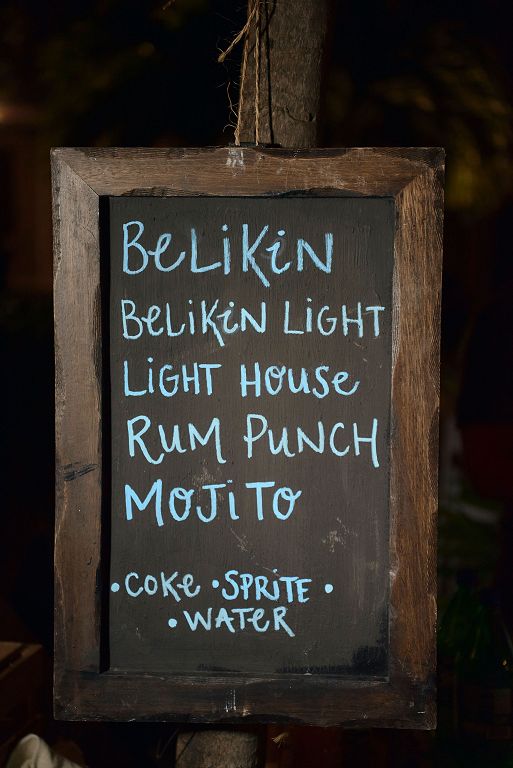 BeLiKiN
BeLiKiN LiGHT
LiGHT HOUSe
RUM PUNCH
MOJiTO
•COKe •SPRiTE •
•WATER